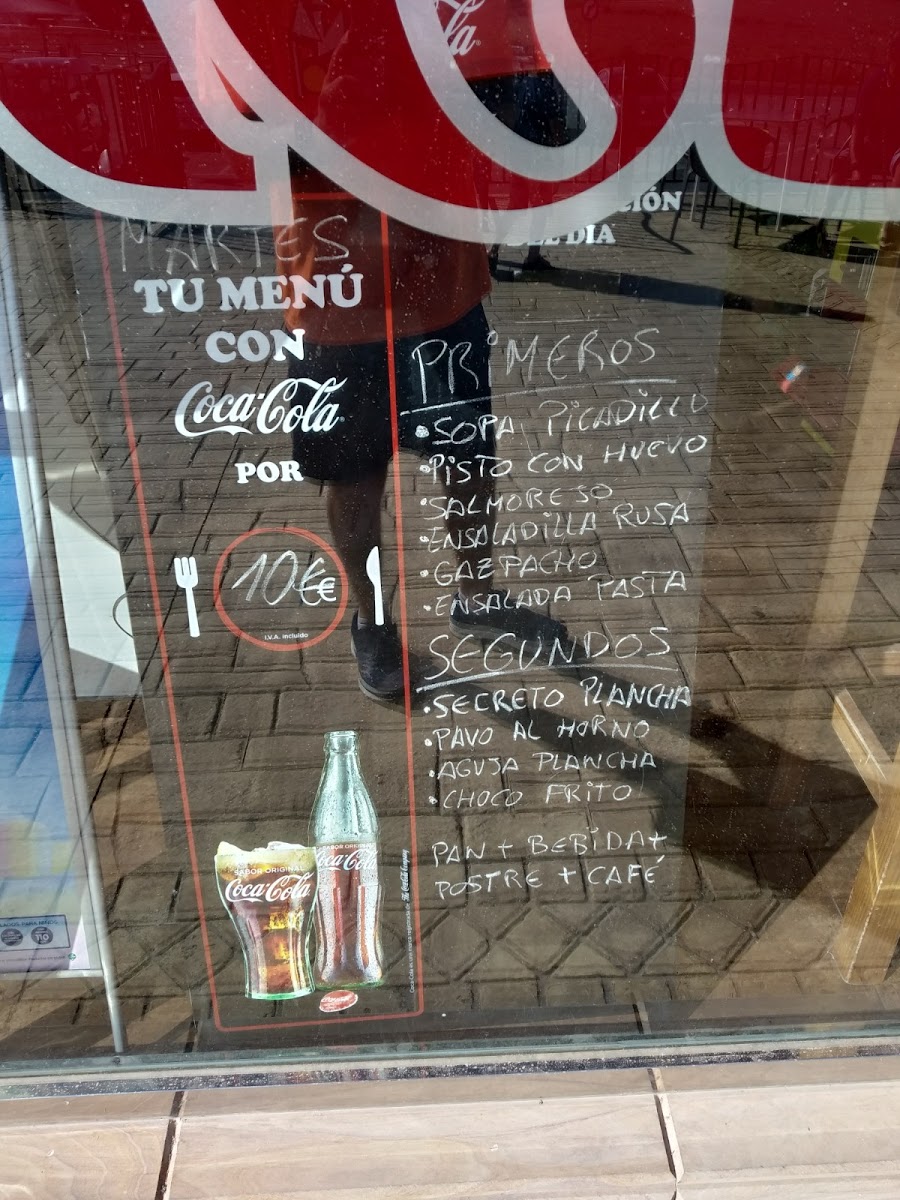 MARTES
TU MENÚ
CON
Coca-Cola
POR
10€€
I.V.A. incluido
SABOR ORIGINAL
Coca-Cola
SABOR ORIGINAL
Coca-Cola
DEL DIA
PRIMEROS
• SOPA PICADILLO
• PISTO CON HUEVO
• SALMOREJO
• ENSALADILLA RUSA
• GAZPACHO
• ENSALADA PASTA
SEGUNDOS
• SECRETO PLANCHA
• PAVO AL HORNO
• AGUJA PLANCHA
• CHOCO FRITO
PAN + BEBIDA +
POSTRE + CAFÉ